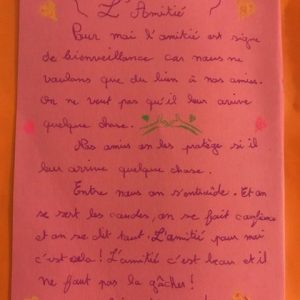 L'Amitié
Pour moi l'amitié est signe
de bienveillance car nous ne
voulons que du bien à nos amis.
On ne veut pas qu'il leur arrive
quelque chose.
Nos amis on les protège si il
leur arrive quelque chose.
Entre nous on s'entraide. Et on
se sert les coudes, on se fait confiance
et on se dit tout. L'amitié pour moi
c'est cela! L'amitié c'est beau et il
ne faut pas la gâcher!